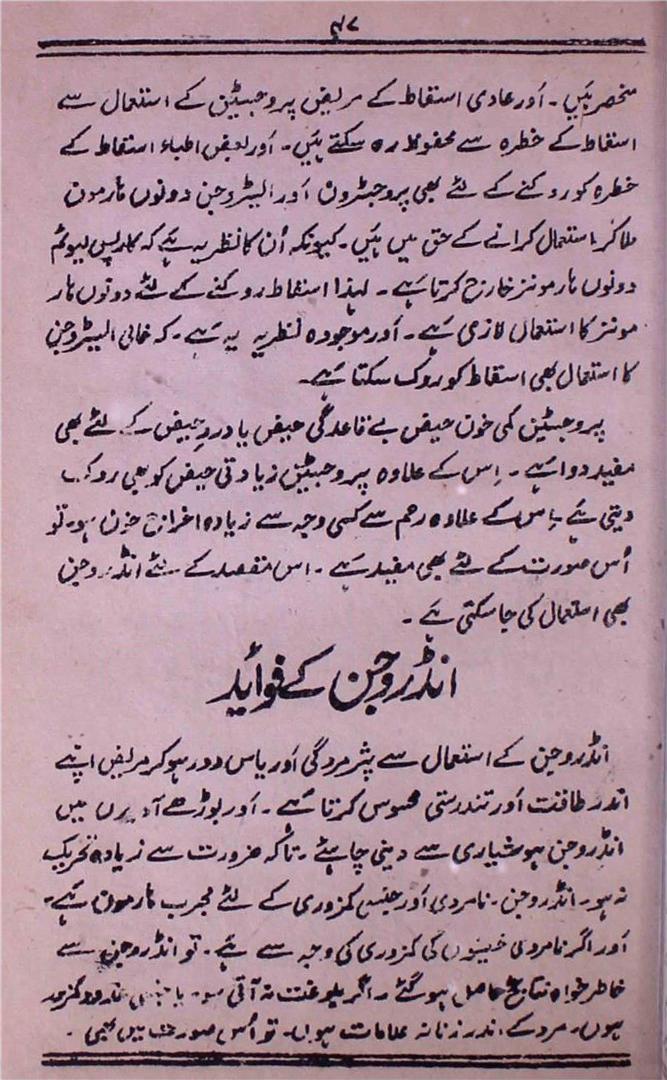 ۴۸
منحصر ہیں۔ اور عادی اسقاط کے مریض پروجسٹین کے استعمال سے
اسقاط کے خطرہ سے محفوظ رہ سکتے ہیں۔ اور بعض اطباء اسقاط کے
خطرہ کو روکنے کے لئے بھی پروجسٹرون اور ایسٹروجن دونوں ہارمون
ملا کر استعمال کرانے کے حق میں ہیں۔ کیونکہ اُن کا نظریہ ہے کہ کارپس لیوٹم
دونوں ہارمونز خارج کرتا ہے۔ لہذا اسقاط روکنے کے لئے دونوں ہار
مونز کا استعمال لازمی ہے۔ اور موجودہ نظریہ یہ ہے۔ کہ خالی ایسٹروجن
کا استعمال بھی اسقاط کو روک سکتا ہے۔
پروجسٹین کمی خون حیض بے قاعدگی حیض یا درد حیض کے لئے بھی
مفید دوا ہے۔ اِس کے علاوہ پروجسٹین زیادتی حیض کو بھی روک
دیتی ہے۔ اِس کے علاوہ رحم سے کسی وجہ سے زیادہ اخراج خون ہو۔ تو
اُس صورت کے لئے بھی مفید ہے۔ اس مقصد کے لئے انڈروجن
بھی استعمال کی جا سکتی ہے۔
انڈروجن کے فوائد
انڈروجن کے استعمال سے پژمردگی اور یاس دور ہو کر مریض اپنے
اندر طاقت اور تندرستی محسوس کرتا ہے۔ اور بوڑھے آدمیوں میں
انڈروجن ہوشیاری سے دینی چاہئے۔ تاکہ ضرورت سے زیادہ تحریک
نہ ہو۔ انڈروجن۔ نامردی اور جنسی کمزوری کے لئے مجرب ہارمون ہے۔
اور اگر نامردی خصیوں کی کمزوری کی وجہ سے ہے۔ تو انڈروجن سے
خاطر خواہ نتائج حاصل ہو گئے۔ اگر بلوغت نہ آتی ہو۔ یا جنسی غدود کمزور
ہوں۔ مرد کے اندر زنانہ علامات ہوں۔ تو اُس صورت میں بھی۔